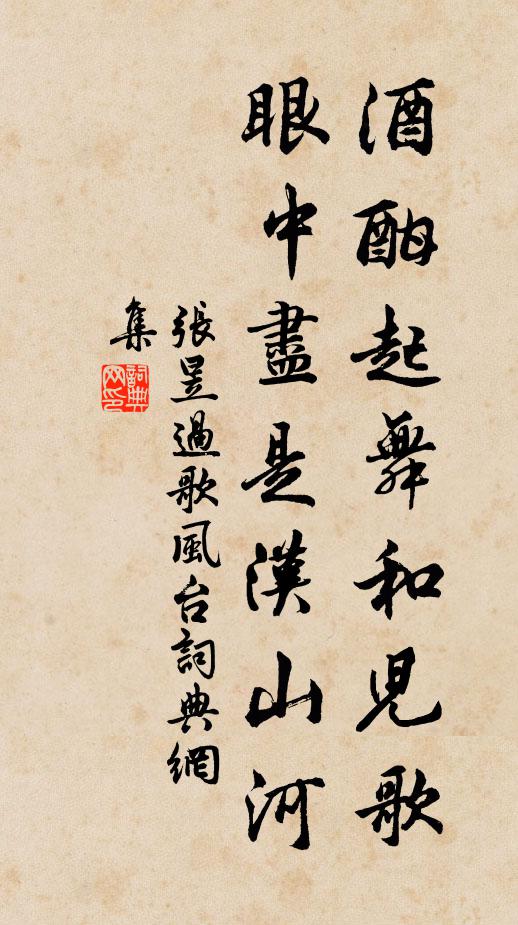 酒酣起舞和児歌
眼中盡是漢山河
張昱過歌風台詞典網
集
詞典
网印